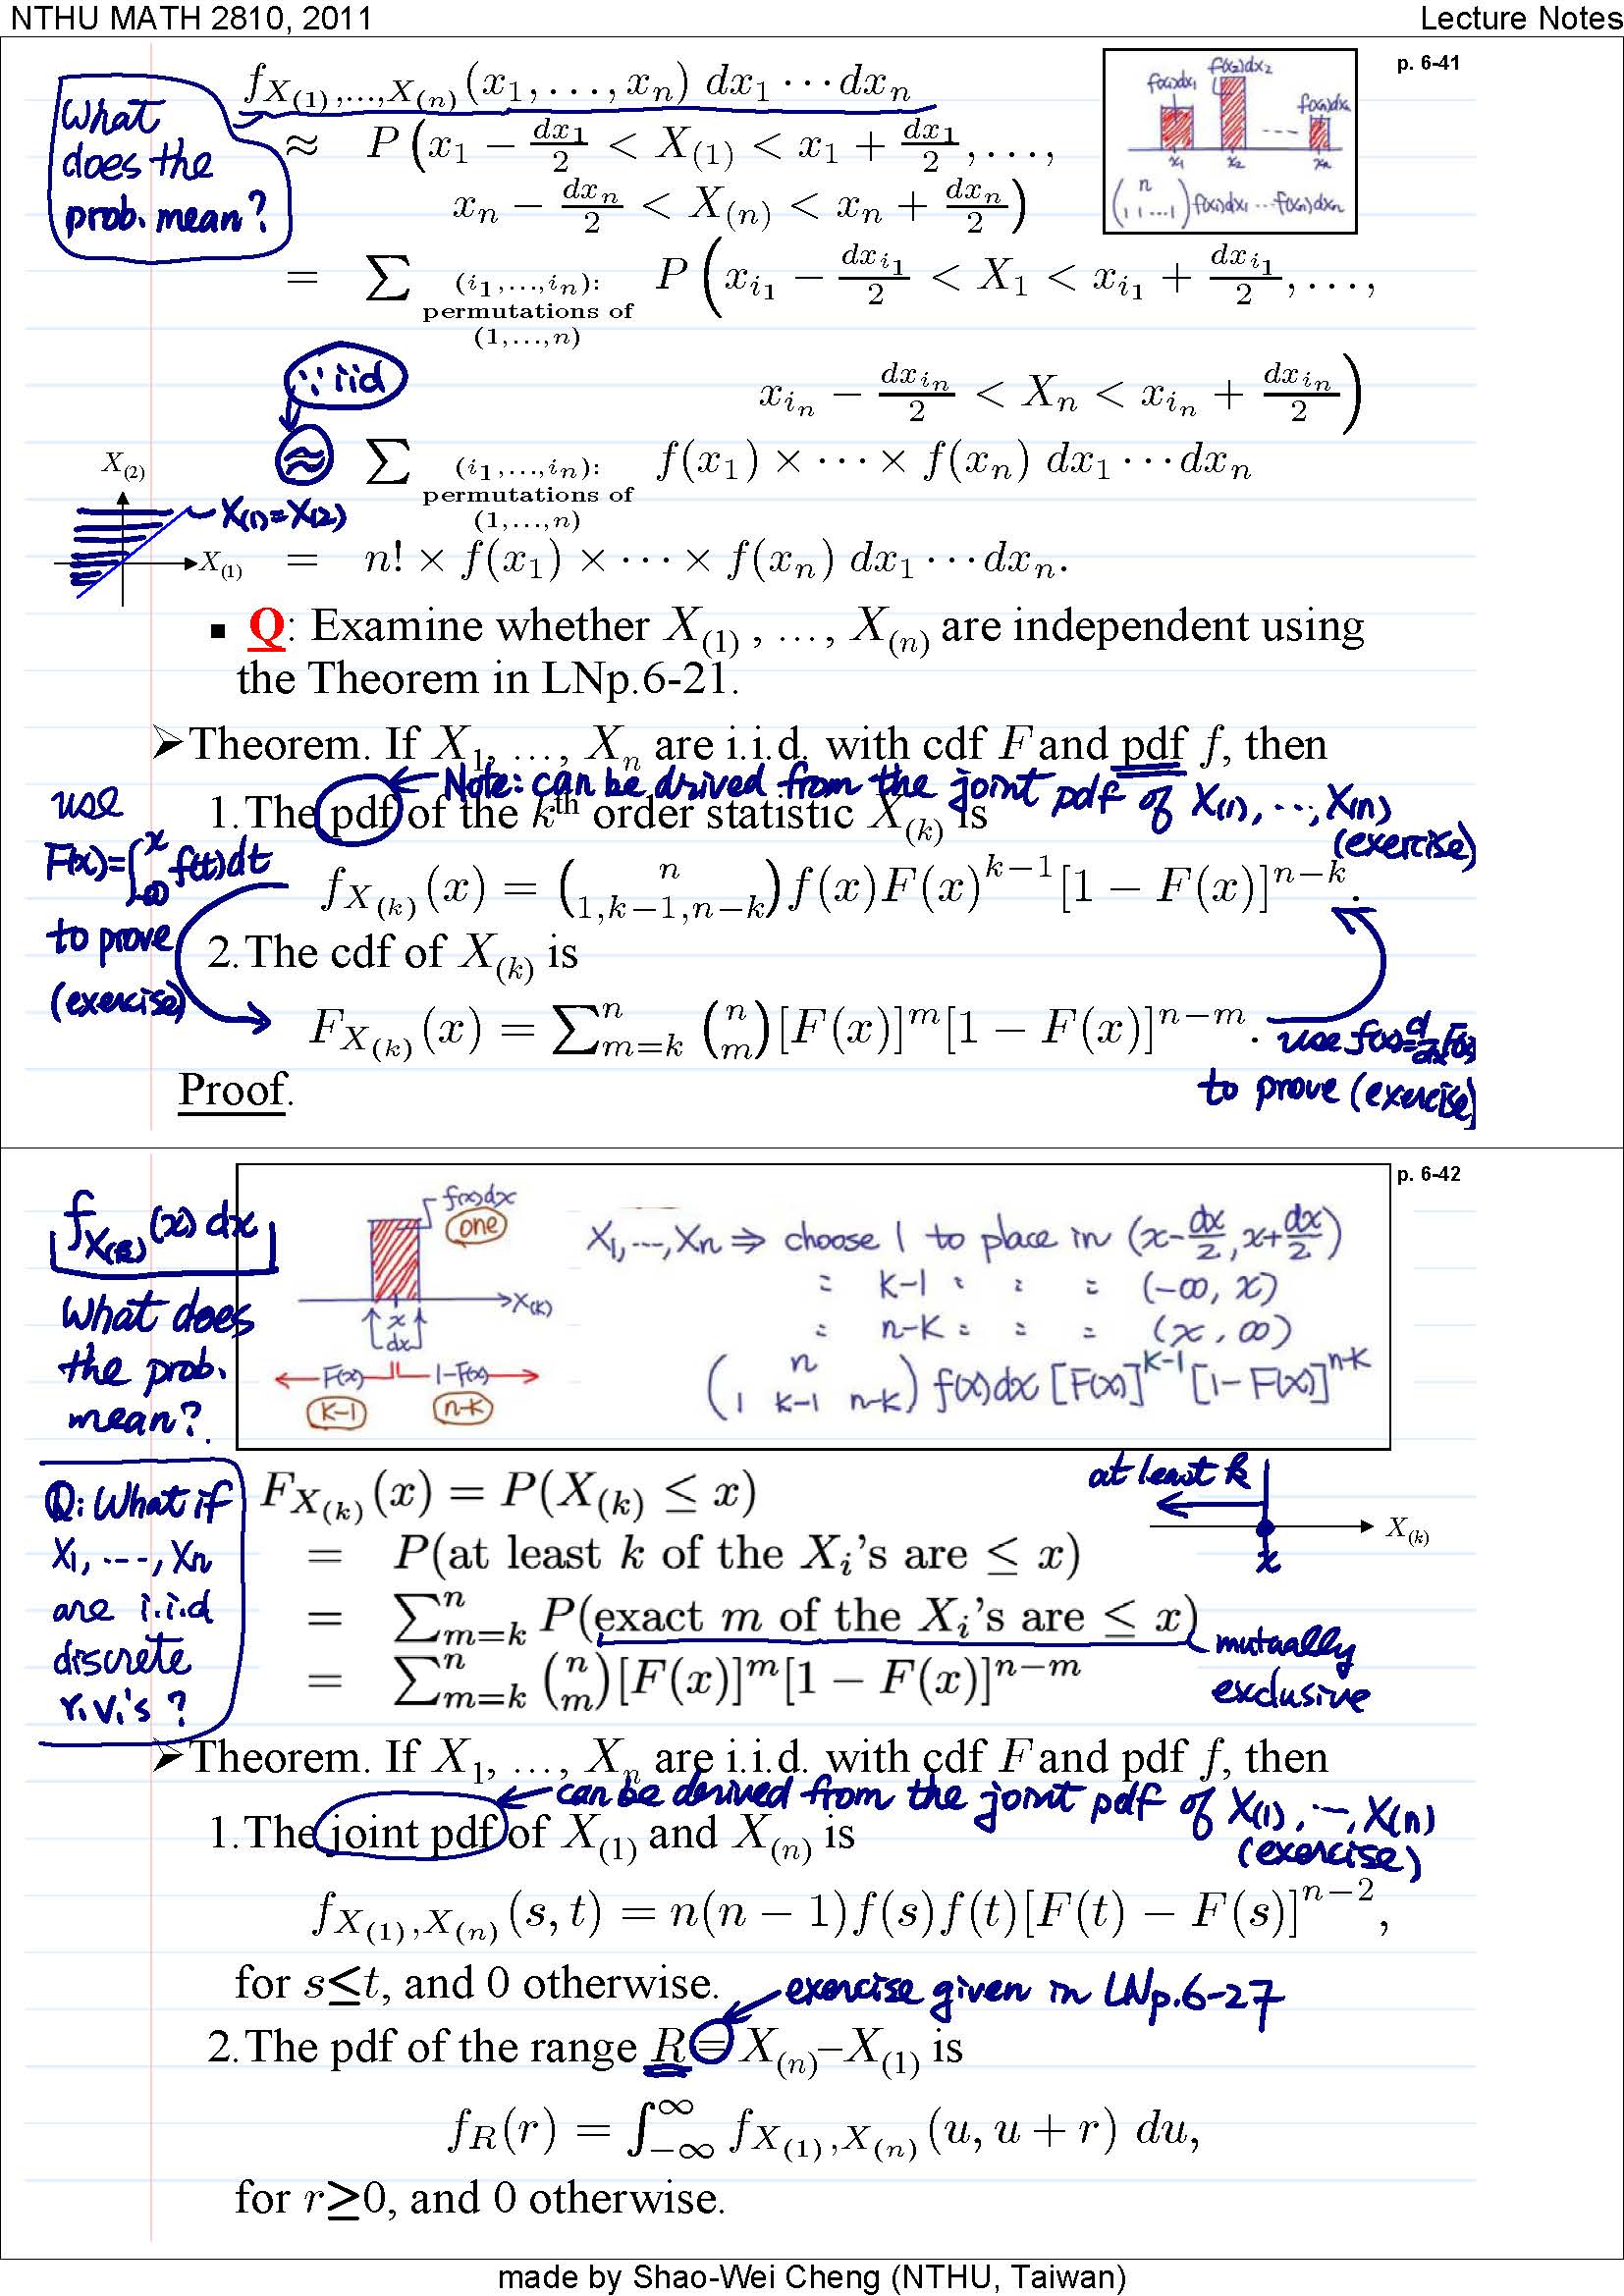 NTHU MATH 2810, 2011 Lecture Notes
p. 6-41
What does the prob. mean?
f_{X_{(1)},...,X_{(n)}}(x_1, ..., x_n) dx_1 ··· dx_n
≈ P(x_1 − dx_1/2 < X_{(1)} < x_1 + dx_1/2, ...,
x_n − dx_n/2 < X_{(n)} < x_n + dx_n/2)
f(x_1)dx_1 f(x_2)dx_2 f(x_n)dx_n
x_1 x_2 ---- x_n
(n / 1 1 ... 1) f(x_1)dx_1 ··· f(x_n)dx_n
= ∑ (i_1,...,i_n): permutations of (1,...,n) P(x_{i_1} − dx_{i_1}/2 < X_1 < x_{i_1} + dx_{i_1}/2, ...,
x_{i_n} − dx_{i_n}/2 < X_n < x_{i_n} + dx_{i_n}/2)
∵ iid
≈ ∑ (i_1,...,i_n): permutations of (1,...,n) f(x_1) × ··· × f(x_n) dx_1 ··· dx_n
X_{(2)}
X_{(1)}=X_{(2)}
X_{(1)}
= n! × f(x_1) × ··· × f(x_n) dx_1 ··· dx_n.
▪ Q: Examine whether X_{(1)}, ..., X_{(n)} are independent using
the Theorem in LNp.6-21.
➢Theorem. If X_1, ..., X_n are i.i.d. with cdf F and pdf f, then
Note: can be drived from the joint pdf of X_{(1)}, ..., X_{(n)}
(exercise)
1.The pdf of the k^{th} order statistic X_{(k)} is
f_{X_{(k)}}(x) = (n / 1,k−1,n−k) f(x)F(x)^{k−1}[1 − F(x)]^{n−k}.
use
F(x)=∫_{-∞}^{x} f(t)dt
to prove
(exercise)
2.The cdf of X_{(k)} is
F_{X_{(k)}}(x) = ∑_{m=k}^{n} (n / m)[F(x)]^m[1 − F(x)]^{n−m}.
use f(x)=d/dx F(x)
to prove (exercise)
Proof.
p. 6-42
f_{X_{(k)}}(x) dx
What does
the prob.
mean?
f(x)dx
one
X_{(k)}
x
dx
F(x) 1-F(x)
k-1 n-k
X_1, ..., X_n ⇒ choose 1 to place in (x-dx/2, x+dx/2)
= k-1 = = = (-∞, x)
= n-k = = = (x, ∞)
(n / 1 k-1 n-k) f(x)dx [F(x)]^{k-1} [1-F(x)]^{n-k}
Q: What if
X_1, ..., X_n
are i.i.d
discrete
r.v.'s ?
F_{X_{(k)}}(x) = P(X_{(k)} ≤ x)
at least k
X_{(k)}
x
= P(at least k of the X_i's are ≤ x)
= ∑_{m=k}^{n} P(exact m of the X_i's are ≤ x)
mutually
exclusive
= ∑_{m=k}^{n} (n / m)[F(x)]^m[1 − F(x)]^{n−m}
➢Theorem. If X_1, ..., X_n are i.i.d. with cdf F and pdf f, then
can be derived from the joint pdf of X_{(1)}, ..., X_{(n)}
(exercise)
1.The joint pdf of X_{(1)} and X_{(n)} is
f_{X_{(1)},X_{(n)}}(s, t) = n(n − 1)f(s)f(t)[F(t) − F(s)]^{n−2},
for s≤t, and 0 otherwise.
exercise given in LNp.6-27
2.The pdf of the range R = X_{(n)}–X_{(1)} is
f_R(r) = ∫_{−∞}^{∞} f_{X_{(1)},X_{(n)}}(u, u + r) du,
for r≥0, and 0 otherwise.
made by Shao-Wei Cheng (NTHU, Taiwan)